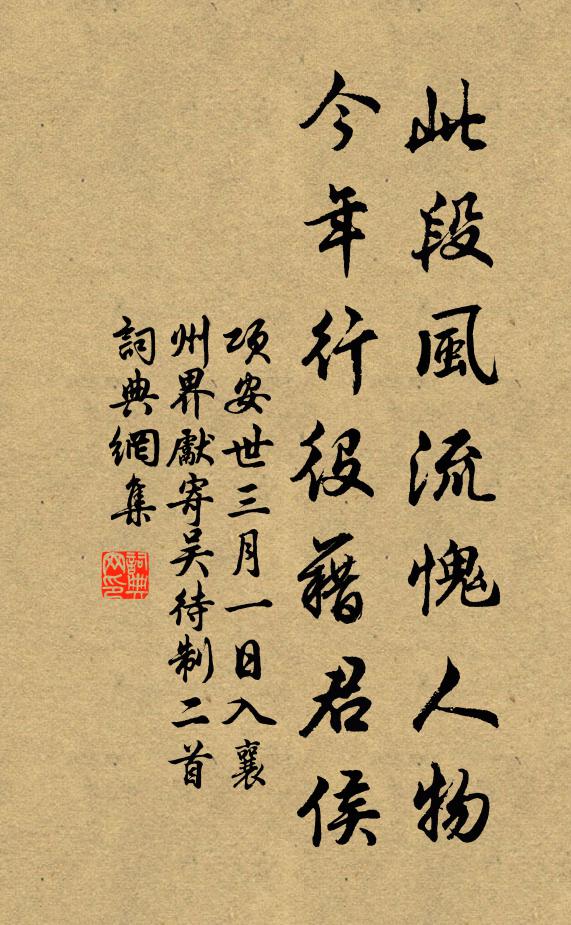 此段風流愧人物
今年行役藉君侯
項安世三月一日入襄
州界獻寄吴待制二首
詞典網集
詞典
网印